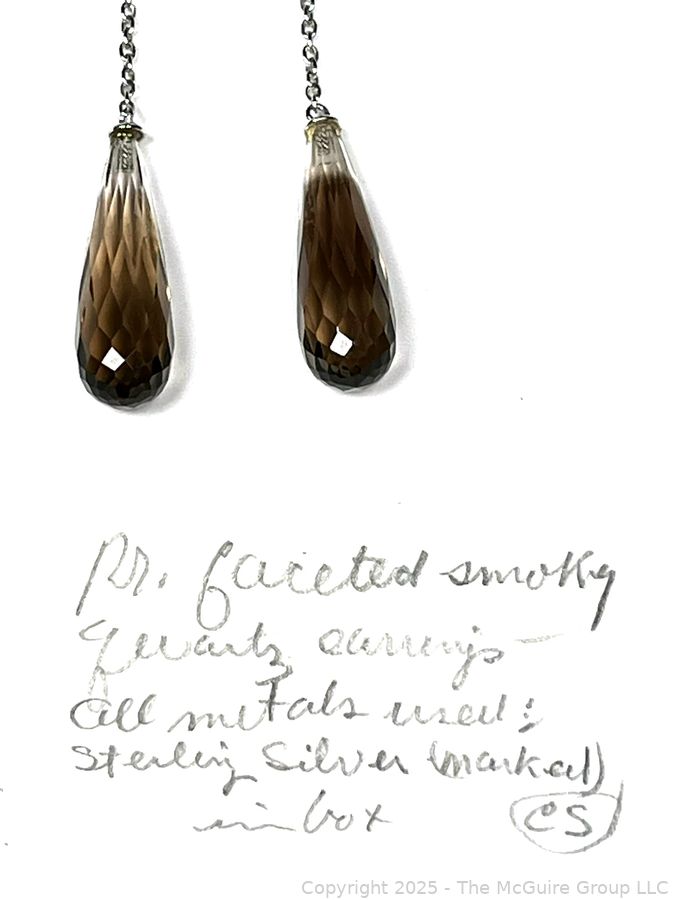 Pr. faceted smoky
quartz earrings —
all metals used:
sterling silver (marked)
in box CS
Copyright 2025 - The McGuire Group LLC